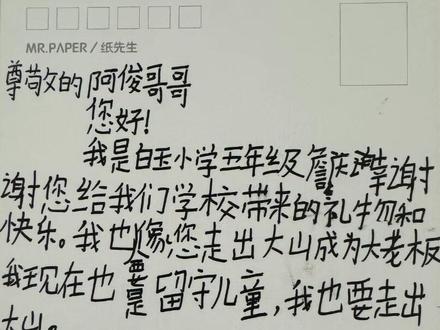 MR.PAPER / 纸先生
尊敬的阿俊哥哥
您好!
我是白玉小学五年级詹庆谢
谢您给我们学校带来的礼物和
快乐。我也像您走出大山成为大老板
我现在也是留守儿童,我也要走出
大山。